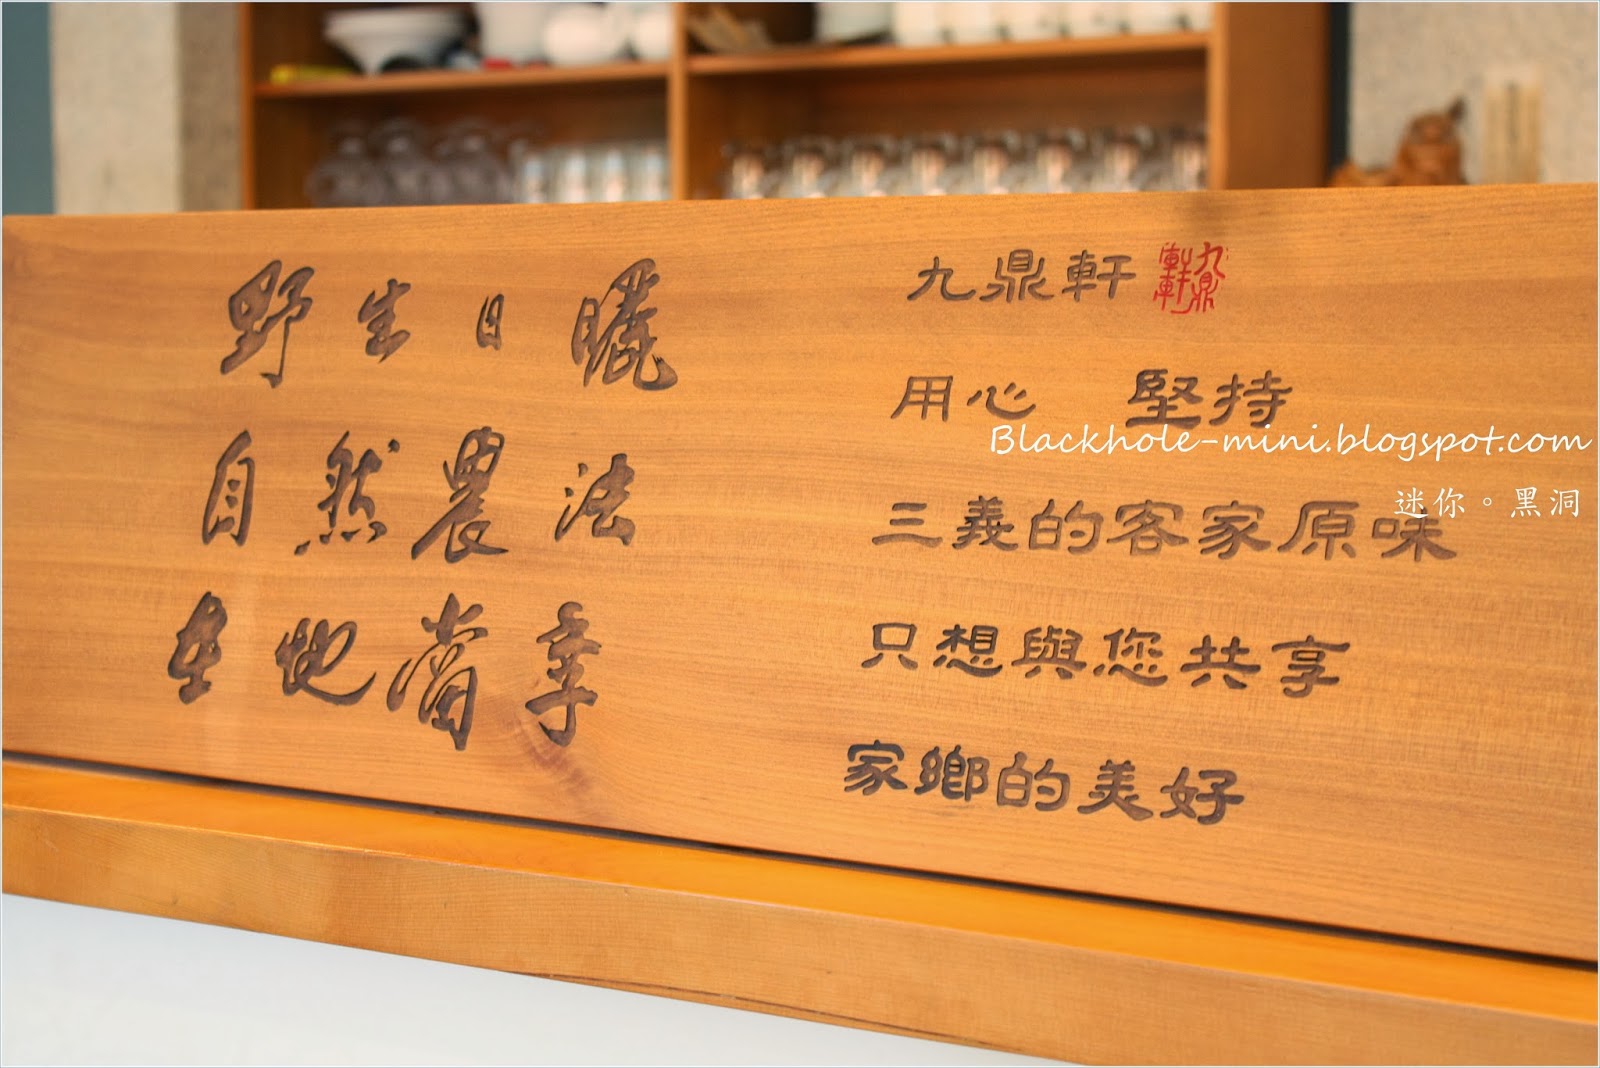 野生日曬
自然農法
在地當季
九鼎軒 九鼎軒
用心 堅持
三義的客家原味
只想與您共享
家鄉的美好
Blackhole-mini.blogspot.com
迷你。黑洞